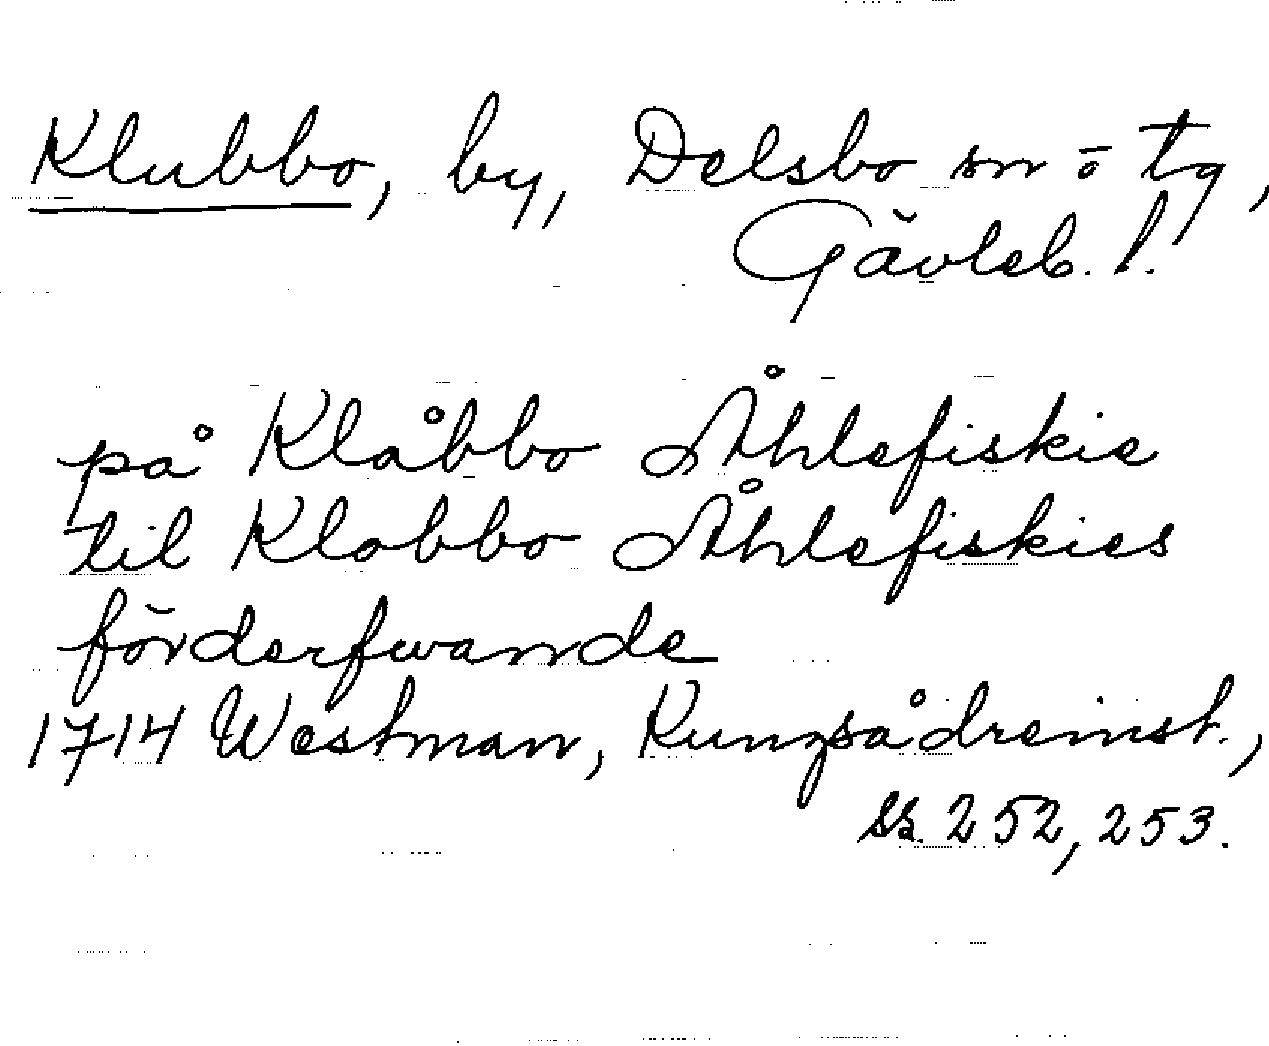 Klubbo, by, Delsbo sn o tg,
Gävleb. l.
på Klåbbo Åhlefiskie
til Klobbo Åhlefiskies
förderfwande
1714 Westman, Kungsådreinst.,
ss. 252, 253.